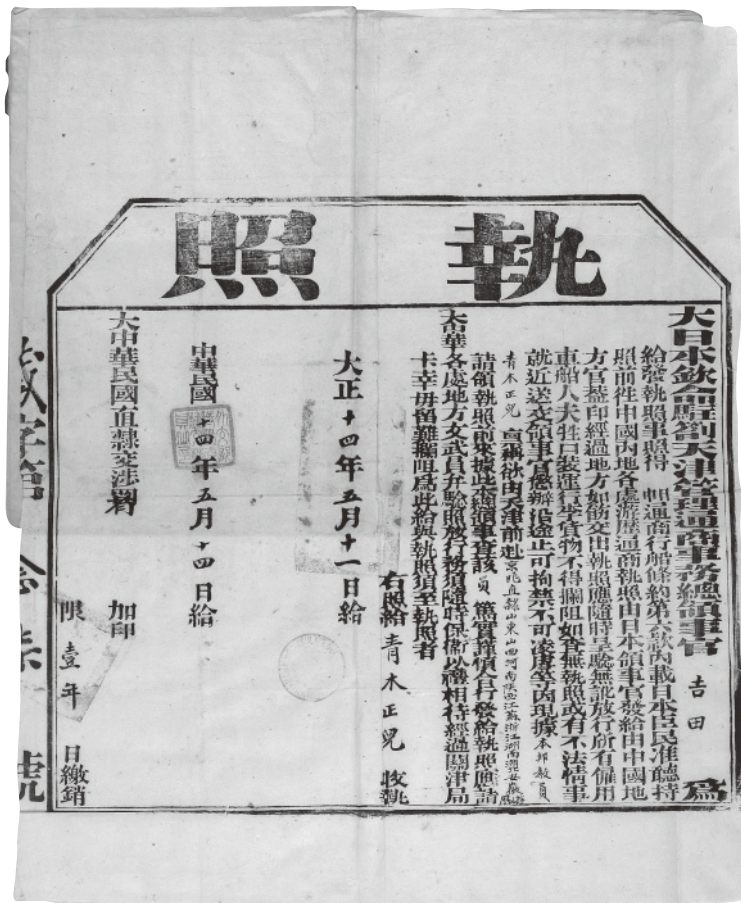 執照
大日本欽命駐劄天津管理通商事務總領事官 吉田 爲
給發執照事照得 通商行船條約第六款內載日本臣民准聽持
照前往中國內地各處游歷通商執照由日本領事官發給由中國地
方官蓋印經過地方如飭交出執照應隨時呈驗無訛放行所有僱用
車船人夫牲口裝運行李貨物不得攔阻如查無執照或有不法情事
就近送交領事官懲辦沿途止可拘禁不可凌虐等因現據 本邦教員
青木正兒 稟稱欲由天津前赴 京兆直隸山東山西河南陝西江蘇浙江湖南湖北安徽
請領執照前來據此本總領事查該 員 篤實謹慎合行發給執照應請
大中華各處地方文武員弁驗照放行務須隨時保衛以禮相待經過關津局
卡幸毋留難攔阻爲此給與執照須至執照者
右照給 青木正兒 收執
大正十四年五月十一日給
中華民國十四年五月十四日給
大中華民國直隸交涉署 加印
限壹年 日繳銷
字第 念柒 號